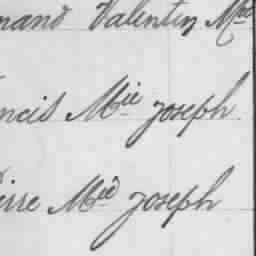 mand Valentin Mie
ncis Mie Joseph
ierre Mie Joseph